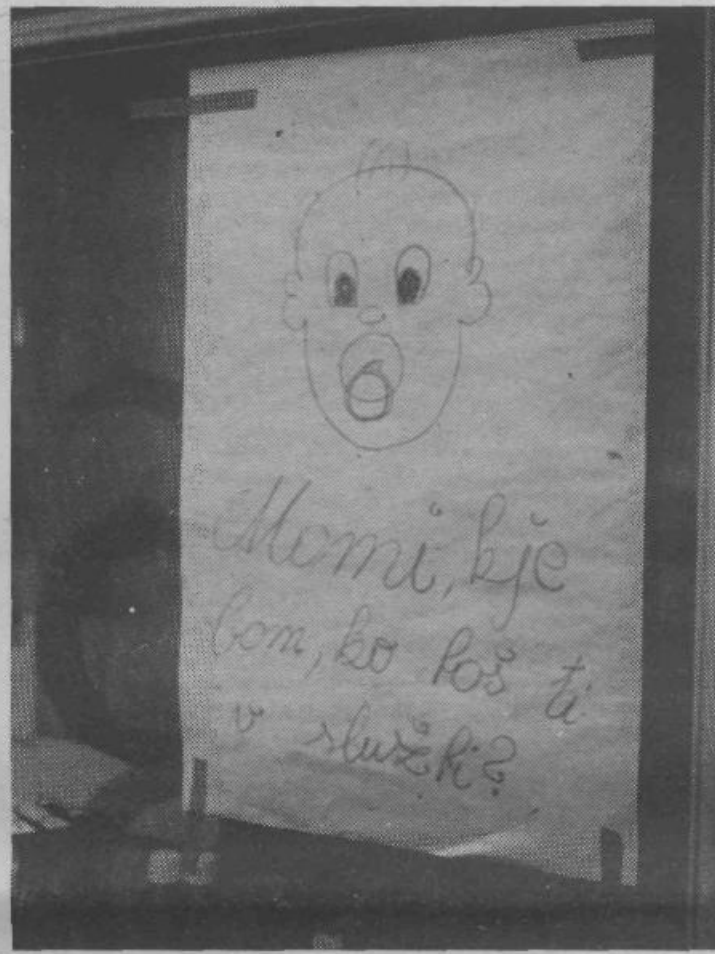 Mami, kje
bom, ko boš ti
v službi?